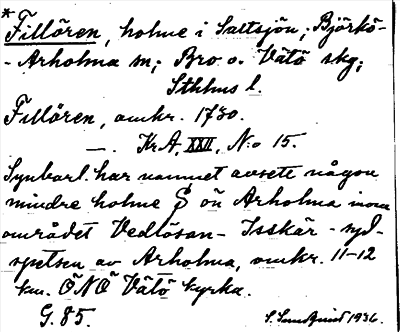 * Fillören, holme i Saltsjön; Björkö-
- Arholma sn; Bro o. Vätö skg;
Sthlms l.
Fillören, omkr. 1730.
—. Kr A, XXII, N:o 15.
Synbarl. har namnet avsete någon
mindre holme S ön Arholma inom
området Vedlösan - Isskär - syd-
spetsen av Arholma, omkr. 11-12
km. ÖNÖ Vätö kyrka.
G. 85.
1936.